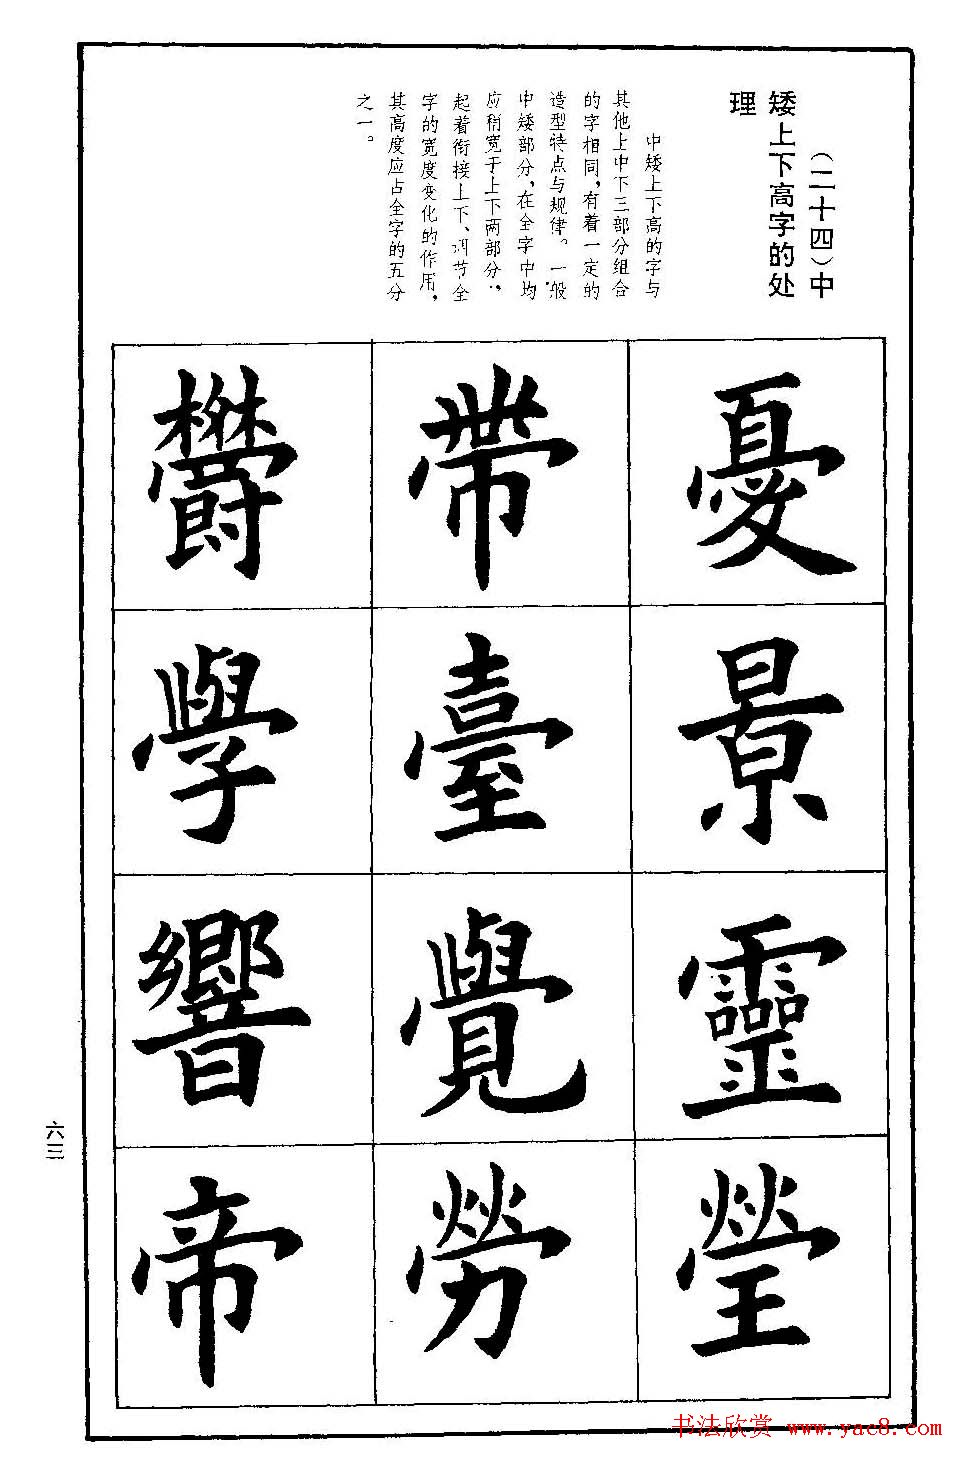 （二十四）中
矮上下高字的处
理
中矮上下高的字与
其他上中下三部分组合
的字相同，有着一定的
造型特点与规律。一般
中矮部分，在全字中均
应稍宽于上下两部分，
起着衔接上下、调节全
字的宽度变化的作用，
其高度应占全字的五分
之一。
憂景靈瑩
帶臺覺勞
欝學響帝
六三
书法欣赏 www.yac8.com